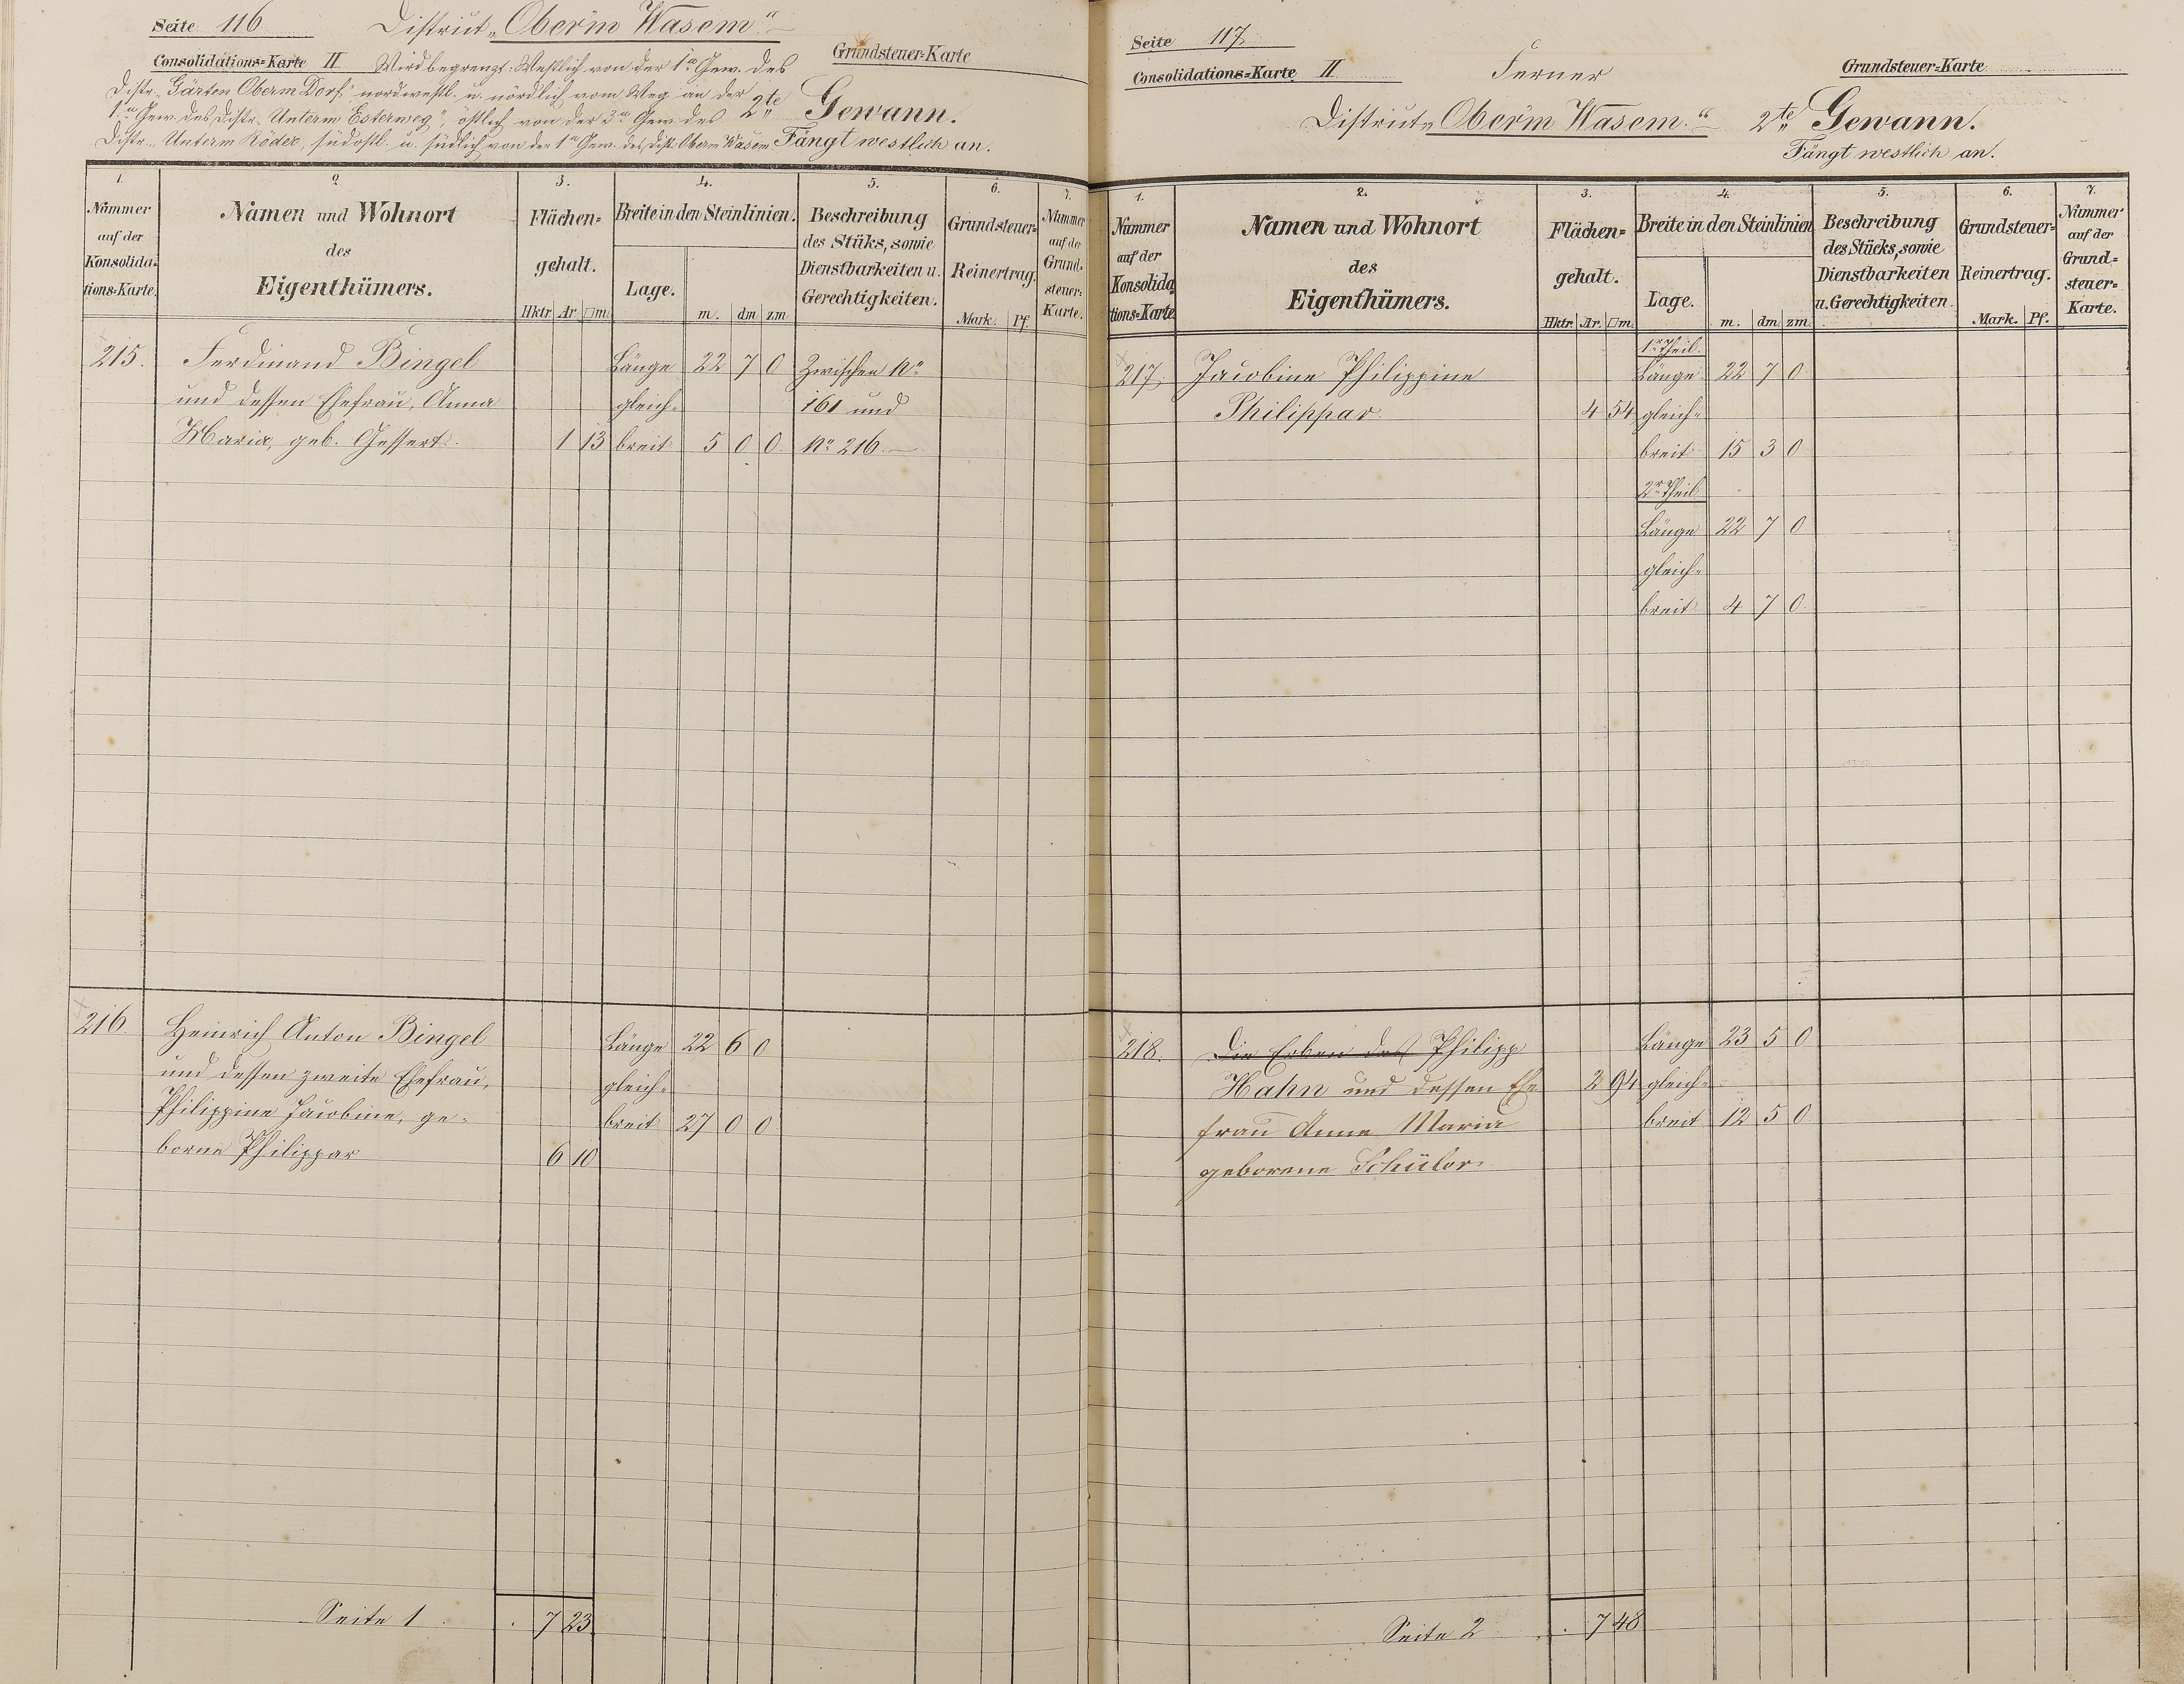 Seite 116 District „Ober'm Wasem“
Consolidations=Karte II Wird begrenzt: Westlich von der 1n Gew. des Grundsteuer=Karte
Distr. „Gärten Oberm Dorf“ nordwestl. u. nördlich vom Weg an der
1n Gew. des Distr. „Unterm Esterweg“, östlich von der 3n Gew. des 2te Gewann.
Distr. „Unterm Röder, südöstl. u. südlich von der 1n Gew. des Distr. Oberm Wasem. Fängt westlich an.
1. 2. 3. 4. 5. 6. 7.
Nummer auf der Konsolida=tions=Karte.
Namen und Wohnort
des
Eigenthümers.
Flächen=
gehalt.
Hktr. Ar □m.
Breite in den Steinlinien.
Lage. m. dm zm
Beschreibung
des Stüks, sowie
Dienstbarkeiten u.
Gerechtigkeiten.
Grundsteuer=
Reinertrag.
Mark. Pf.
Nummer
auf der
Grund=
steuer=
Karte.
215. Ferdinand Bingel Länge 22 7 0 Zwischen No
und dessen Ehefrau, Anna gleich= 161 und
Maria, geb. Gessert. 1 13 breit 5 0 0. No 216.
216. Heinrich Anton Bingel Länge 22 6 0
und dessen zweite Ehefrau, gleich=
Philippine Jacobine, ge= breit 27 0 0
borne Philippar 6 10
Seite 1 . 7 23
Seite 117.
Consolidations=Karte II Ferner Grundsteuer=Karte
District „Ober'm Wasem.“ 2te Gewann.
Fängt westlich an.
1. 2. 3. 4. 5. 6. 7.
Nummer
auf der
Konsolida
tions=Karte
Namen und Wohnort
des
Eigenthümers.
Flächen=
gehalt.
Hktr. Ar. □m.
Breite in den Steinlinien
Lage. m. dm zm.
Beschreibung
des Stücks, sowie
Dienstbarkeiten
u. Gerechtigkeiten.
Grundsteuer=
Reinertrag.
Mark. Pf.
Nummer
auf der
Grund=
steuer=
Karte.
1r Theil.
217. Jacobine Philippine Länge 22 7 0
Philippar 4 54 gleich=
breit 15 3 0
2r Theil
Länge 22 7 0
gleich=
breit 4 7 0.
218. Die Erben des Philipp Länge 23 5 0
Hahn und dessen Ehe 2 94 gleich=
frau Anna Maria breit 12 5 0.
geborene Schüler
Seite 2 . 7 48